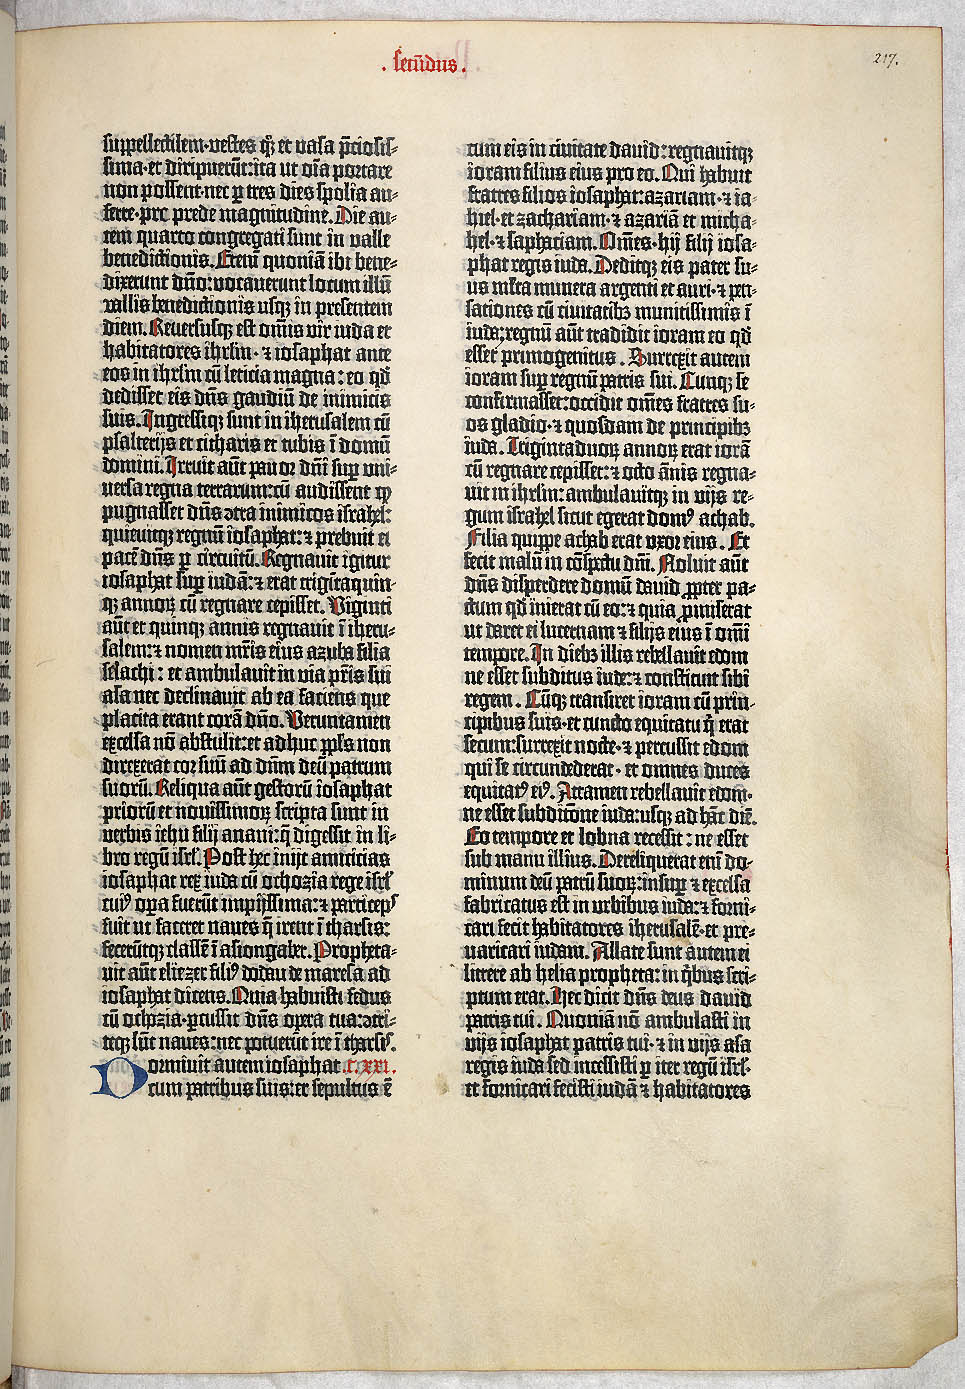 . secūdus .
217.
suppellectilem·vestes qȝ et vasa p̄ciosis-
sima·et diripuerūt: ita ut oīa portare
non possent·nec p̱ tres dies spolia au-
ferre·pre prede magnitudine. Die au-
tem quarto congregati sunt in valle
benedictionis. Etenī quoniā ibi bene-
dixerunt dn̄o: vocaverunt locum illū
vallis benedictionis usqȝ in presentem
diem. Reversusqȝ est om̄is vir iuda et
habitatores ihrl̄m·⁊ iosaphat ante
eos in ihrl̄m cū leticia magna: eo qd̄
dedisset eis dn̄s gaudiū de inimicis
suis. Ingressiqȝ sunt in iherusalem cū
psalterijs et citharis et tubis ī domū
domini. Irruit aūt pavor dn̄i sup̱ uni-
versa regna terrarum: cū audissent qꝫ
pugnasset dn̄s ꝯtra inimicos israhel:
quievitqȝ regnū iosaphat: ⁊ prebuit ei
pacē dn̄s p̱ circuitū. Regnavit igitur
iosaphat sup̱ iudā: ⁊ erat trigītaquin-
qȝ annoꝝ cū regnare cepisset. Viginti
aūt et quinqȝ annis regnavit ī iheru-
salem: ⁊ nomen mr̄is eius azuba filia
selachi: et ambulavit in via pr̄is sui
asa nec declinavit ab ea faciens que
placita erant corā dn̄o. Verumtamen
excelsa nō abstulit: et adhuc ppl̄s non
direxerat cor suū ad dn̄m deū patrum
suorū. Reliqua aūt gestorū iosaphat
priorū et novissimoꝝ scripta sunt in
verbis iehu filij anani: q̄ digessit in li-
bro regū isrl̄. Post hec inijt amicicias
iosaphat rex iuda cū ochozia rege isrl̄
cuiꝰ oꝑa fuerūt impijssima: ⁊ particepˢ
fuit ut faceret naves q̄ irent ī tharsis:
fecerūtqȝ classē ī asiongaber. Propheta-
vit aūt eliezer filiꝰ dodau de maresa ad
iosaphat dicens. Quia habuisti fedus
cū ochozia·ꝑcussit dn̄s opera tua: ꝯtri-
teqȝ sūt naves: nec potuerūt ire ī tharsis.
Dormivit autem iosaphat c.xxi.
cum patribus suis: et sepultus ē
cum eis in civitate david: regnavitqȝ
ioram filius eius pro eo. Qui habuit
fratres filios iosaphat: azariam·⁊ ia-
hiel·et zachariam·⁊ azariā et micha-
hel·⁊ saphatiam. Om̄es·hij filij iosa-
phat regis iuda. Deditqȝ eis pater su-
us ml̄ta munera argenti et auri·⁊ pen-
sationes cū civitatibȝ munitissimis ī
iuda: regnū aūt tradidit ioram eo qd̄
esset primogenitus. Surrexit autem
ioram sup̱ regnū patris sui. Cunqȝ se
confirmasset: occidit om̄es fratres su-
os gladio·⁊ quosdam de principibȝ
iuda. Trigintaduoꝝ annoꝝ erat iorā
cū regnare cepisset: ⁊ octo ānis regna-
vit in ihrl̄m: ambulavitqȝ in vijs re-
gum israhel sicut egerat domꝰ achab.
Filia quippe achab erat uxor eius. Et
fecit malū in cōspectu dn̄i. Noluit aūt
dn̄s disperdere domū david ꝓpter pa-
ctum qd̄ inierat cū eo: ⁊ quia ꝓmiserat
ut daret ei lucernam ⁊ filijs eius ī omī
tempore. In diebȝ illis rebellavit edom
ne esset subditus iude: ⁊ constituit sibi
regem. Cūqȝ transiret ioram cū prin-
cipibus suis·et cuncto equitatu q̄ erat
secum: surrexit nocte·⁊ percussit edom
qui se circumdederat·et omnes duces
equitatꝰ eiꝰ. Attamen rebellavit edom·
ne esset subditōne iuda: usqȝ ad hāc diē.
Eo tempore et lobna recessit: ne esset
sub manu illius. Dereliquerat enī do-
minum deū patrū suoꝝ: insuꝑ ⁊ excelsa
fabricatus est in urbibus iuda: ⁊ forni-
cari fecit habitatores iherusalē·et pre-
varicari iudam. Allate sunt autem ei
littere ab helia propheta: in q̄bus scri-
ptum erat. Hec dicit dn̄s deus david
patris tui. Quoniā nō ambulasti in
vijs iosaphat patris tui·⁊ in vijs asa
regis iuda sed incessisti ꝑ iter regū isrl̄·
et fornicari fecisti iudā ⁊ habitatores